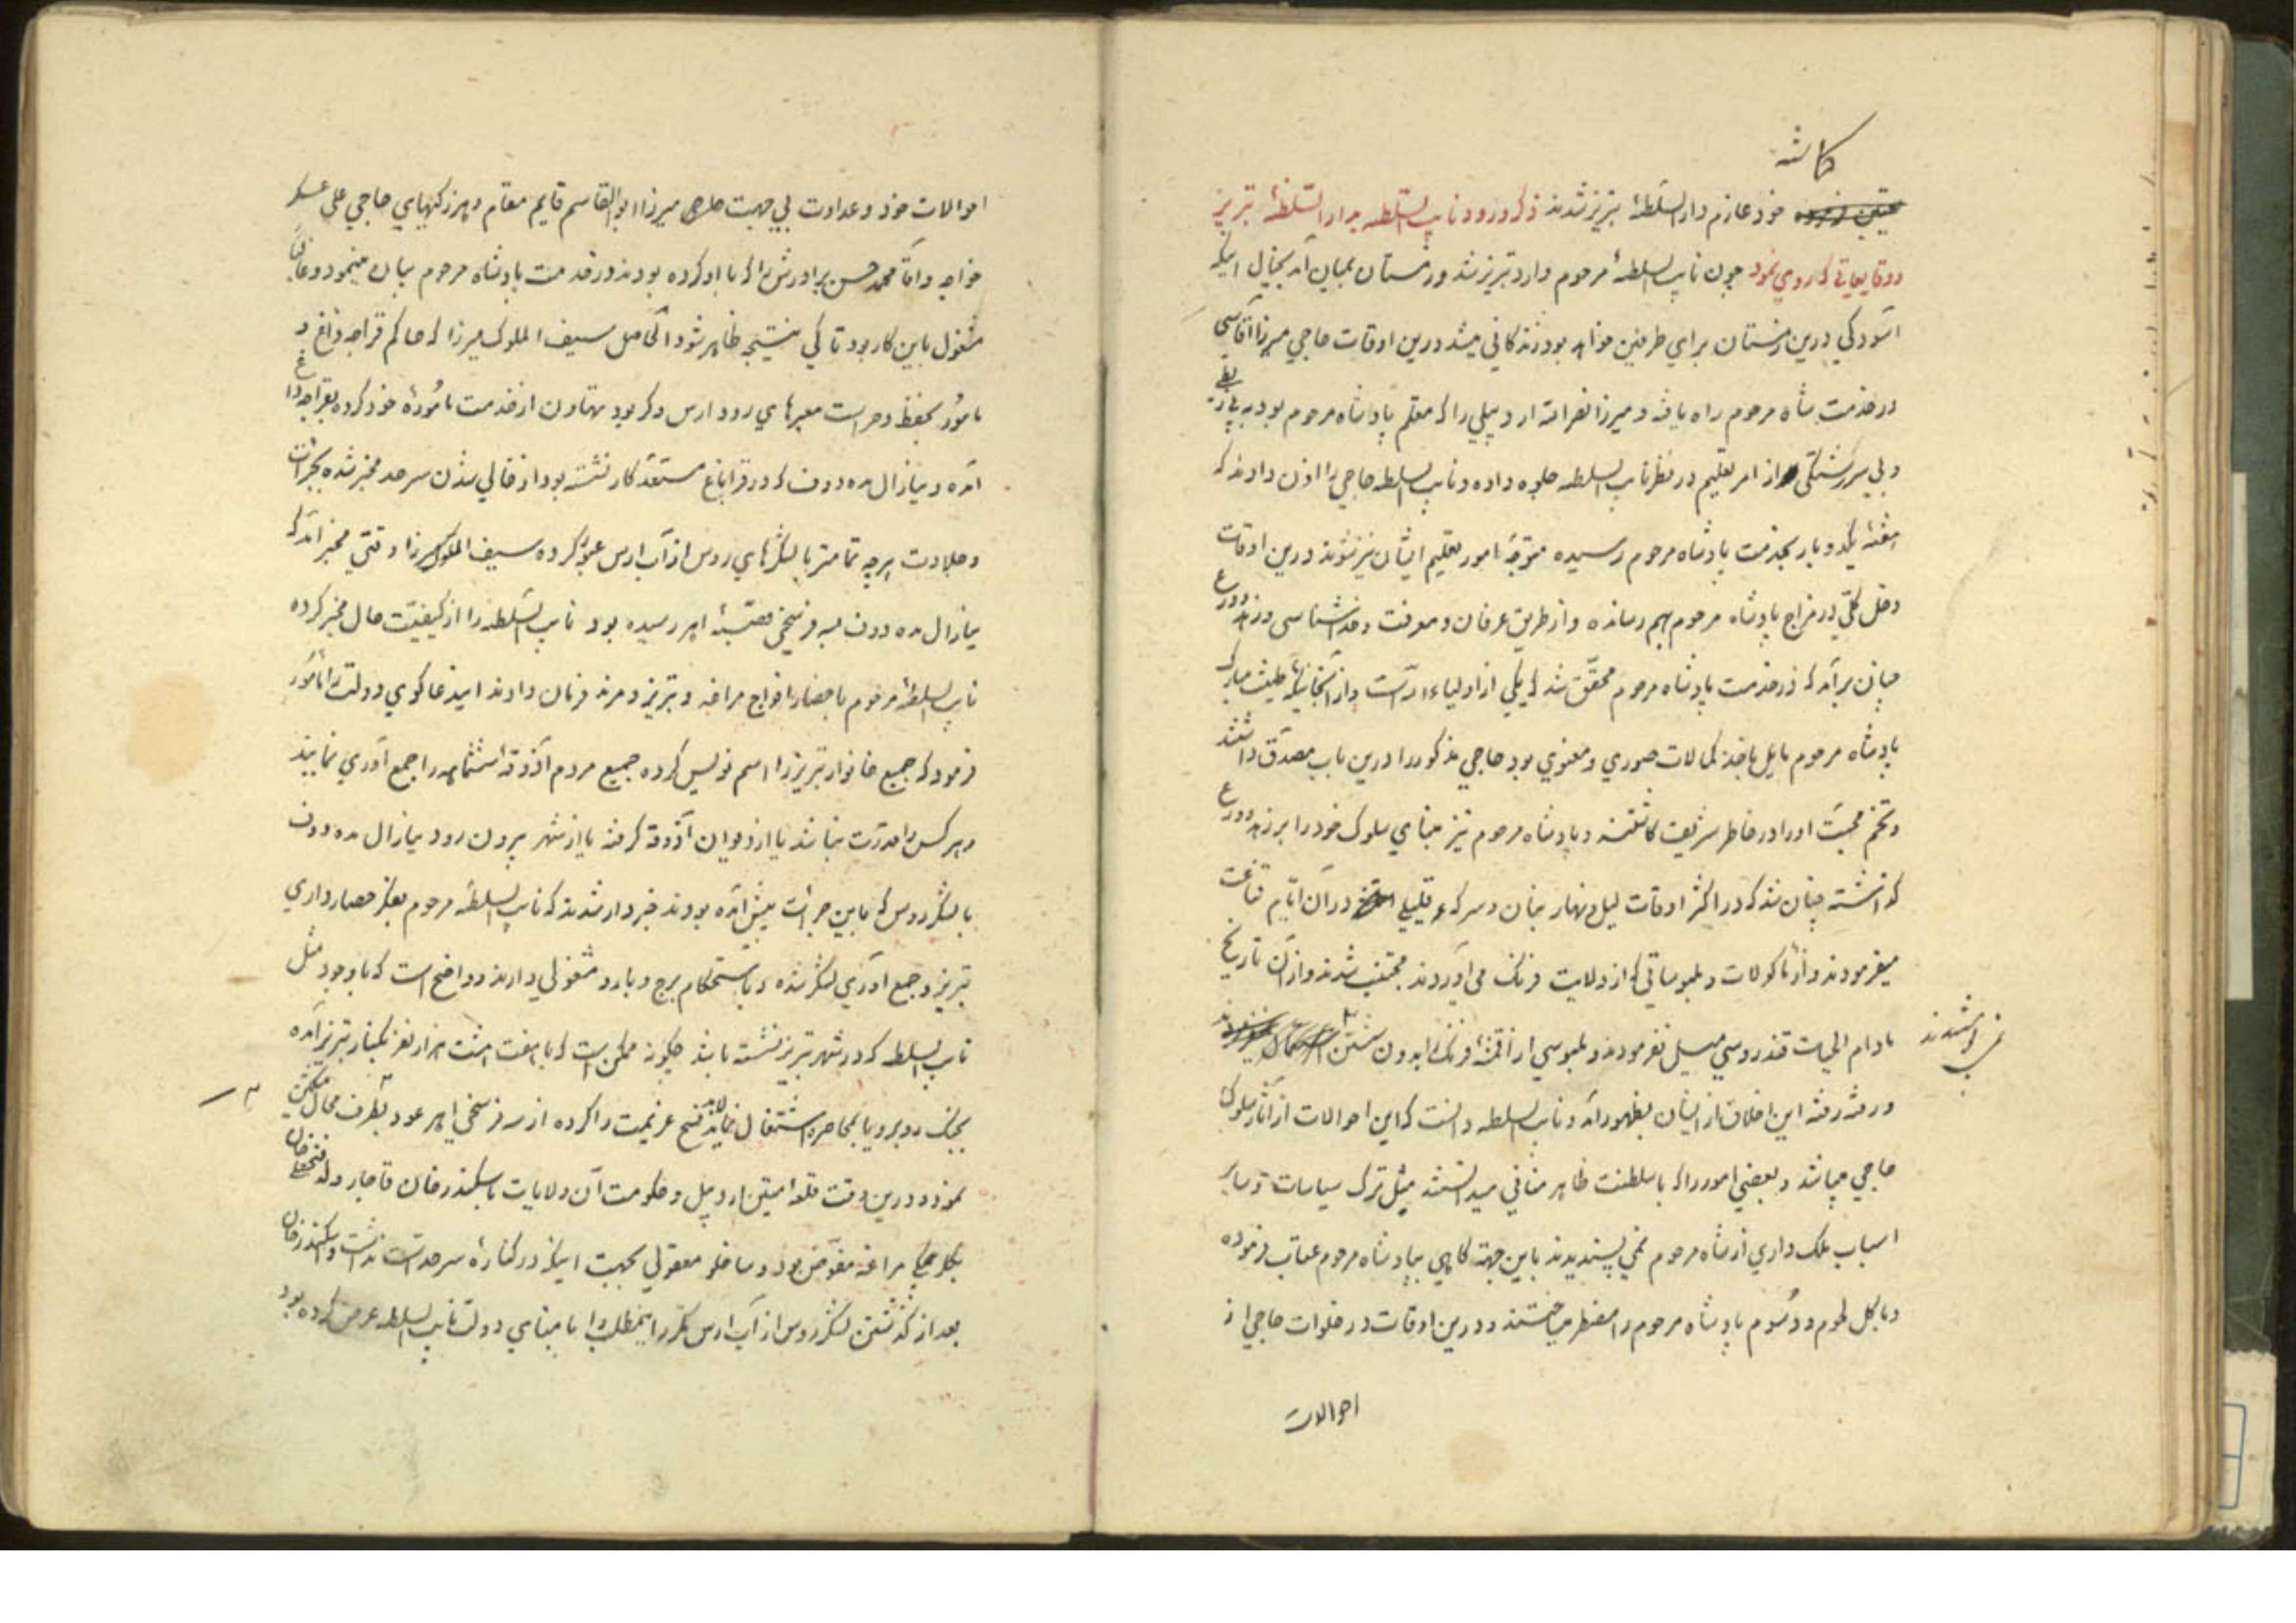 کاشته
خود عازم دارالسلطنهٔ تبریز شدند ذکر ورود نایب السلطنه بدارالسلطنهٔ تبریز
و وقایعاتی که روی نمود چون نایب السلطنهٔ مرحوم وارد تبریز شد و زمستان بمیان آمد بخیال اینکه
آسودگی درین زمستان برای طرفین خواهد بود زندگانی میشد درین اوقات حاجی میرزا آقاسی
در خدمت شاه مرحوم راه یافته و میرزا نصرالله اردبیلی را که معلم پادشاه مرحوم بود به بی ربطی
و بی سررشتگی از امر تعلیم در نظر نایب السلطنه جلوه داده و نایب السلطنه حاجی را اذن دادند که
هفتهٔ یکدو بار بخدمت پادشاه مرحوم رسیده متوجه امور تعلیم ایشان نیز شوند درین اوقات
دخل کلی در مزاج پادشاه مرحوم بهم رسانده و از طریق عرفان و معرفت و خداشناسی و زهد و ورع
چنان برآمد که در خدمت پادشاه مرحوم محقق شد که یکی از اولیاء الله است و از آنجائیکه طینت مبارک
پادشاه مرحوم مایل باخذ کمالات صوری و معنوی بود حاجی مذکور را درین باب مصدق داشتند
و تخم محبت او را در خاطر شریف کاشتند و پادشاه مرحوم نیز بنای سلوک خود را بر زهد و ورع
گذاشته چنان شد که در اکثر اوقات لیل و نهار بنان و سرکهٔ قلیلی در آن ایام قناعت
میفرمودند و از مأکولات و ملبوساتی که از ولایت فرنگ می آوردند مجتنب شدند و از آن تاریخ
مادام الحیات قند روسی میل نفرمودند و ملبوسی از اقمشهٔ فرنگ را بدون شستن
نمی پوشیدند
و رفته رفته این اخلاق از ایشان بظهور آمد و نایب السلطنه دانست که این احوالات از آثار سلوک
حاجی میباشد و بعضی امور را که با سلطنت ظاهر منافی میدانستند مثل ترک سیاسات و سایر
اسباب ملک داری از شاه مرحوم نمی پسندیدند باین جهة گاهی بپادشاه مرحوم عتاب فرموده
و بالکل پادشاه مرحوم را مضطر میساختند و درین اوقات در خلوات حاجی از
احوالات
احوالات خود و عداوت بی جهت میرزا ابوالقاسم قایم مقام و هرزگیهای حاجی علی عسکر
خواجه و آقا محمد حسن برادرش را که با او کرده بودند در خدمت پادشاه مرحوم بیان مینمود و غالباً
مشغول باین کار بود تا کی نتیجه ظاهر شود الحاصل سیف الملوک میرزا که حاکم قراجه داغ و
مأمور بحفظ و حراست معبرهای رود ارس و گرگر بود تهاون از خدمت مأمورهٔ خود کرده بقراجه داغ
آمده و ینارال مده دوف که در قراباغ مستعد کار نشسته بود از خالی شدن سرحد مخبر شده بجرأت
و جلادت هرچه تمامتر با لشکرهای روس از آب ارس عبور کرده سیف الملوک میرزا وقتی مخبر آمد که
ینارال مده دوف بسه فرسخی قصبهٔ اهر رسیده بود نایب السلطنه را از کیفیت حال مخبر کرده
نایب السلطنهٔ مرحوم باحضار افواج مراغه و تبریز و مرند فرمان دادند این دعاگوی دولت را مأمور
فرمود که جمیع خانوار تبریز را اسم نویس کرده جمیع مردم آذوقهٔ ششماهه را جمع آوری نمایند
و هر کس را قدرت نباشد یا از دیوان آذوقه گرفته یا از شهر بیرون رود ینارال مده دوف
با لشکر روس که باین جرأت پیش آمده بودند خبردار شدند که نایب السلطنهٔ مرحوم بفکر حصارداری
تبریز و جمع آوری لشکر شده و باستحکام برج و بارو مشغولی دارند و واضح است که با وجود مثل
نایب السلطنه که در شهر تبریز نشسته باشد چگونه ممکن است که با هفت هشت هزار نفر بکنار تبریز آمده
بجنگ روبرو یا بمحاصره اشتغال نمایند فسخ عزیمت را کرده از سه فرسخی اهر عود بطرف محال مشکین
نمود و درین وقت قلعهٔ متین اردبیل و حکومت آن ولایات باسکندر خان قاجار ولد فتحعلی خان
بیگلربیگی مراغه مفوض بود و ساخلو معقولی بجهت اینکه در کنارهٔ سرحد است نداشت و اسکندر خان
بعد از گذشتن لشکر روس از آب ارس مکرر اینمطلب را بامنای دولت نایب السلطنه عرض کرده بود